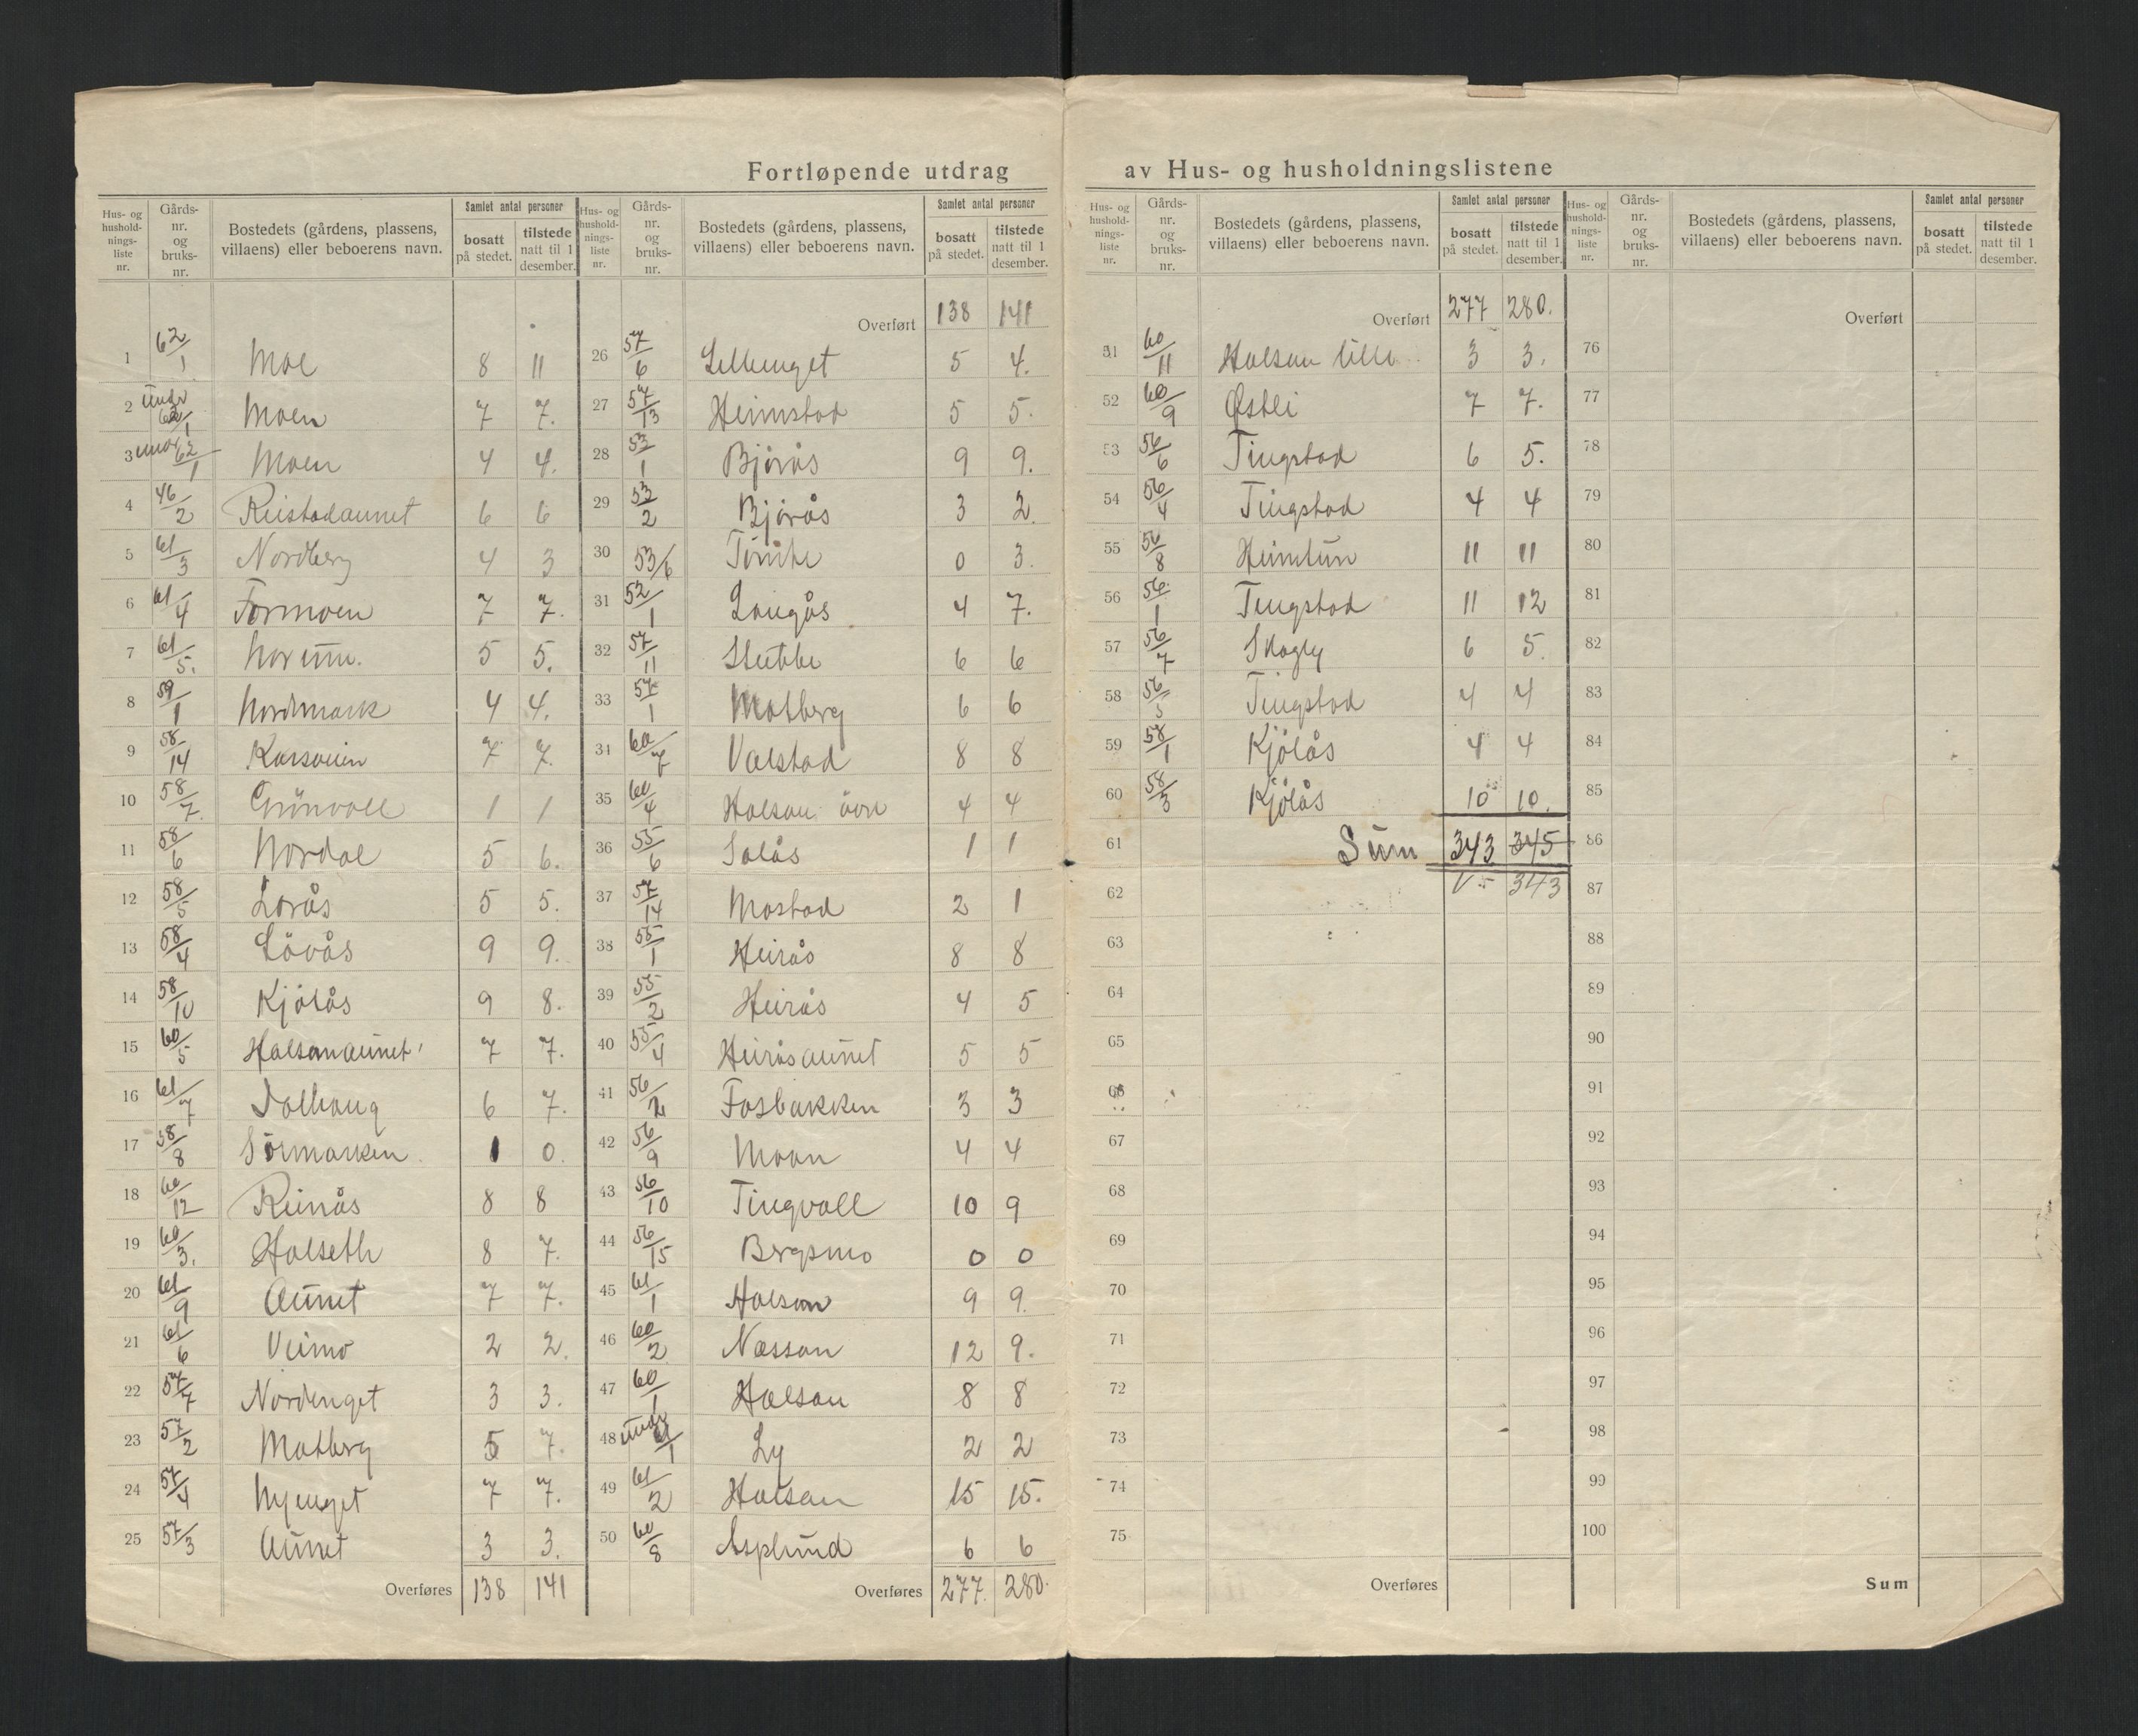 Fortløpende utdrag av Hus- og husholdningslistene
Hus- og hushold-nings-liste nr. | Gårds-nr. og bruks-nr. | Bostedets (gårdens, plassens, villaens) eller beboerens navn. | Samlet antal personer | bosatt på stedet. | tilstede natt til 1 desember.
1 62/1 Moe 8 11
2 under 62/1 Moen 7 7.
3 under 62/1 Moen 4 4.
4 46/2 Reistadaunet 6 6
5 61/3 Nordberg 4 3
6 61/4 Formoen 7 7.
7 61/5. Norum. 5 5.
8 59/1 Nordmark 4 4.
9 58/14 7 7.
10 58/7. Grönvoll 1 1
11 58/6 Nordal 5 6.
12 58/5 Lorås 5 5.
13 58/4 Lövås 9 9.
14 58/10 Kjölås 9 8.
15 60/5 Halsanaunet 7 7.
16 61/7 Dalhaug 6 7.
17 58/8 Sörmarken 1 0.
18 60/12 Reinås 8 8
19 60/3. Halseth 8 7.
20 61/9 Aunet 7 7.
21 61/6 Veimo 2 2.
22 57/7 Nordenget 3 3.
23 57/2 Matberg 5 7.
24 57/4 Nyenget 7 7.
25 57/3 Aunet 3 3.
Overføres 138 141
Hus- og hushold-nings-liste nr. | Gårds-nr. og bruks-nr. | Bostedets (gårdens, plassens, villaens) eller beboerens navn. | Samlet antal personer | bosatt på stedet. | tilstede natt til 1 desember.
Overført 138 141
26 57/6 Lillenget 5 4.
27 57/13 Heimstad 5 5.
28 53/1 Bjørås 9 9.
29 53/2 Bjørås 3 2.
30 53/6 0 3.
31 52/1 Langås 4 7.
32 57/11 Stubbe 6 6
33 57/1 Matberg 6 6
34 60/7 Valstad 8 8
35 60/4 Halsan övre 4 4
36 55/6 Solås 1 1
37 57/14 Mostad 2 1
38 55/1 Heirås 8 8
39 55/2 Heirås 4 5
40 55/4 Heiråsaunet 5 5
41 56/2 Fosbakken 3 3
42 56/9 Moan 4 4
43 56/10 Tingvoll 10 9
44 56/15 Bergsmo 0 0
45 61/1 Halsan 9 9.
46 60/2 Nessan 12 9.
47 60/1 Halsan 8 8
48 under 61/1 Ly 2 2
49 61/2 Halsan 15 15.
50 60/8 Asplund 6 6
Overføres 277. 280.
Hus- og hushold-nings-liste nr. | Gårds-nr. og bruks-nr. | Bostedets (gårdens, plassens, villaens) eller beboerens navn. | Samlet antal personer | bosatt på stedet. | tilstede natt til 1 desember.
Overført 277 280.
51 60/11 Halsan lille 3 3.
52 60/9 Østli 7 7.
53 56/6 Tingstad 6 5.
54 56/4 Tingstad 4 4
55 56/8 Heimtun 11 11
56 56/1 Tingstad 11 12
57 56/7 Skogly 6 5.
58 56/5 Tingstad 4 4
59 58/1 Kjölås 4 4
60 58/3 Kjölås 10 10.
61 Sum 343 345
62 343
63
64
65
66
67
68
69
70
71
72
73
74
75
Overføres
Hus- og hushold-nings-liste nr. | Gårds-nr. og bruks-nr. | Bostedets (gårdens, plassens, villaens) eller beboerens navn. | Samlet antal personer | bosatt på stedet. | tilstede natt til 1 desember.
Overført
76
77
78
79
80
81
82
83
84
85
86
87
88
89
90
91
92
93
94
95
96
97
98
99
100
Sum